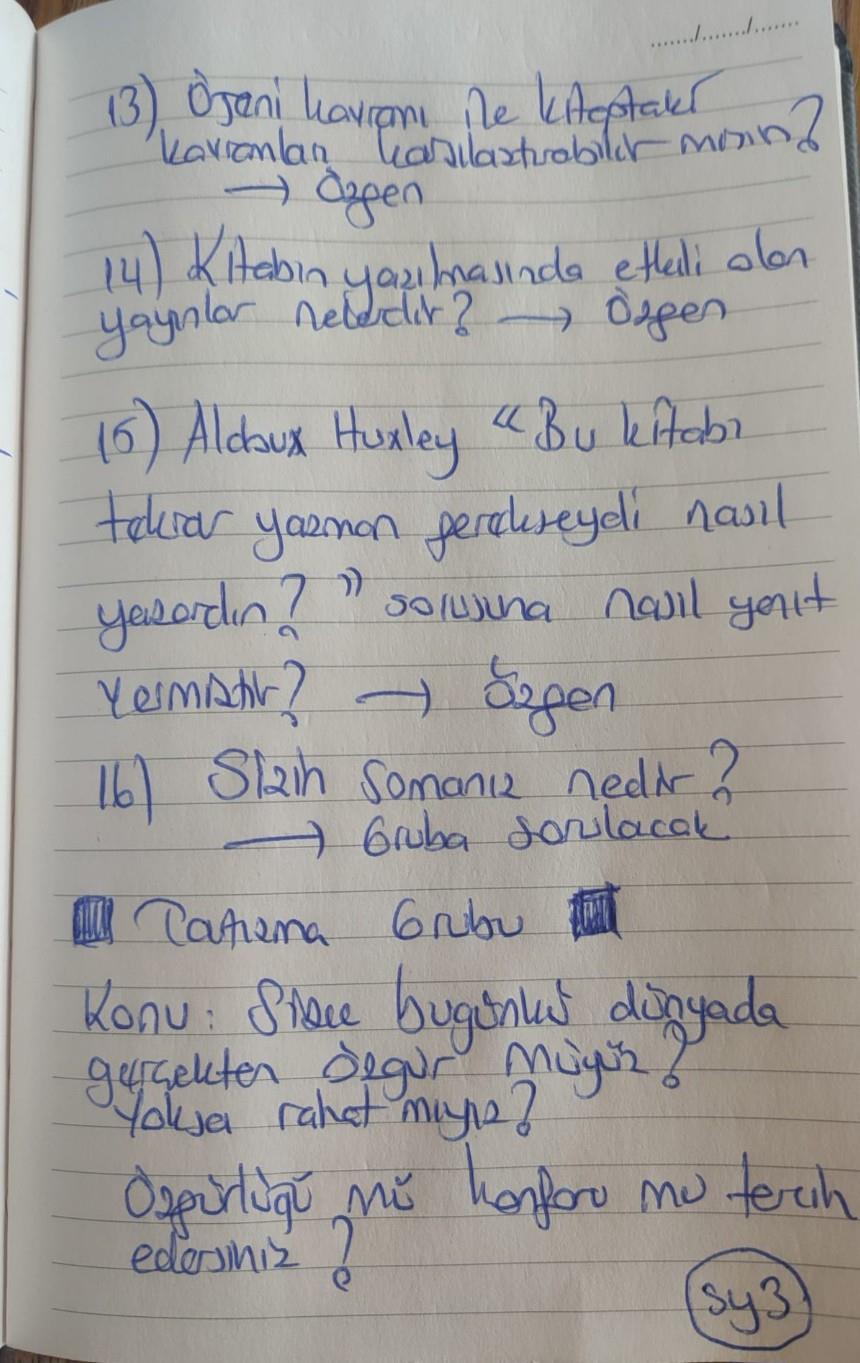 ......./......./.......
13) Öjeni kavramı ile kitaptaki
kavramları karşılaştırabilir misin?
→ Özgen
14) Kitabın yazılmasında etkili olan
yayınlar nelerdir? → Özgen
15) Aldoux Huxley "Bu kitabı
tekrar yazman gerekseydi nasıl
yazardın?" sorusuna nasıl yanıt
vermiştir? → Özgen
16) Sizin Somanız nedir?
→ Gruba sorulacak
Tartışma Grubu
Konu: Sizce bugünkü dünyada
gerçekten özgür müyüz?
Yoksa rahat mıyız?
Özgürlüğü mü konforu mu tercih
edersiniz?
sy3